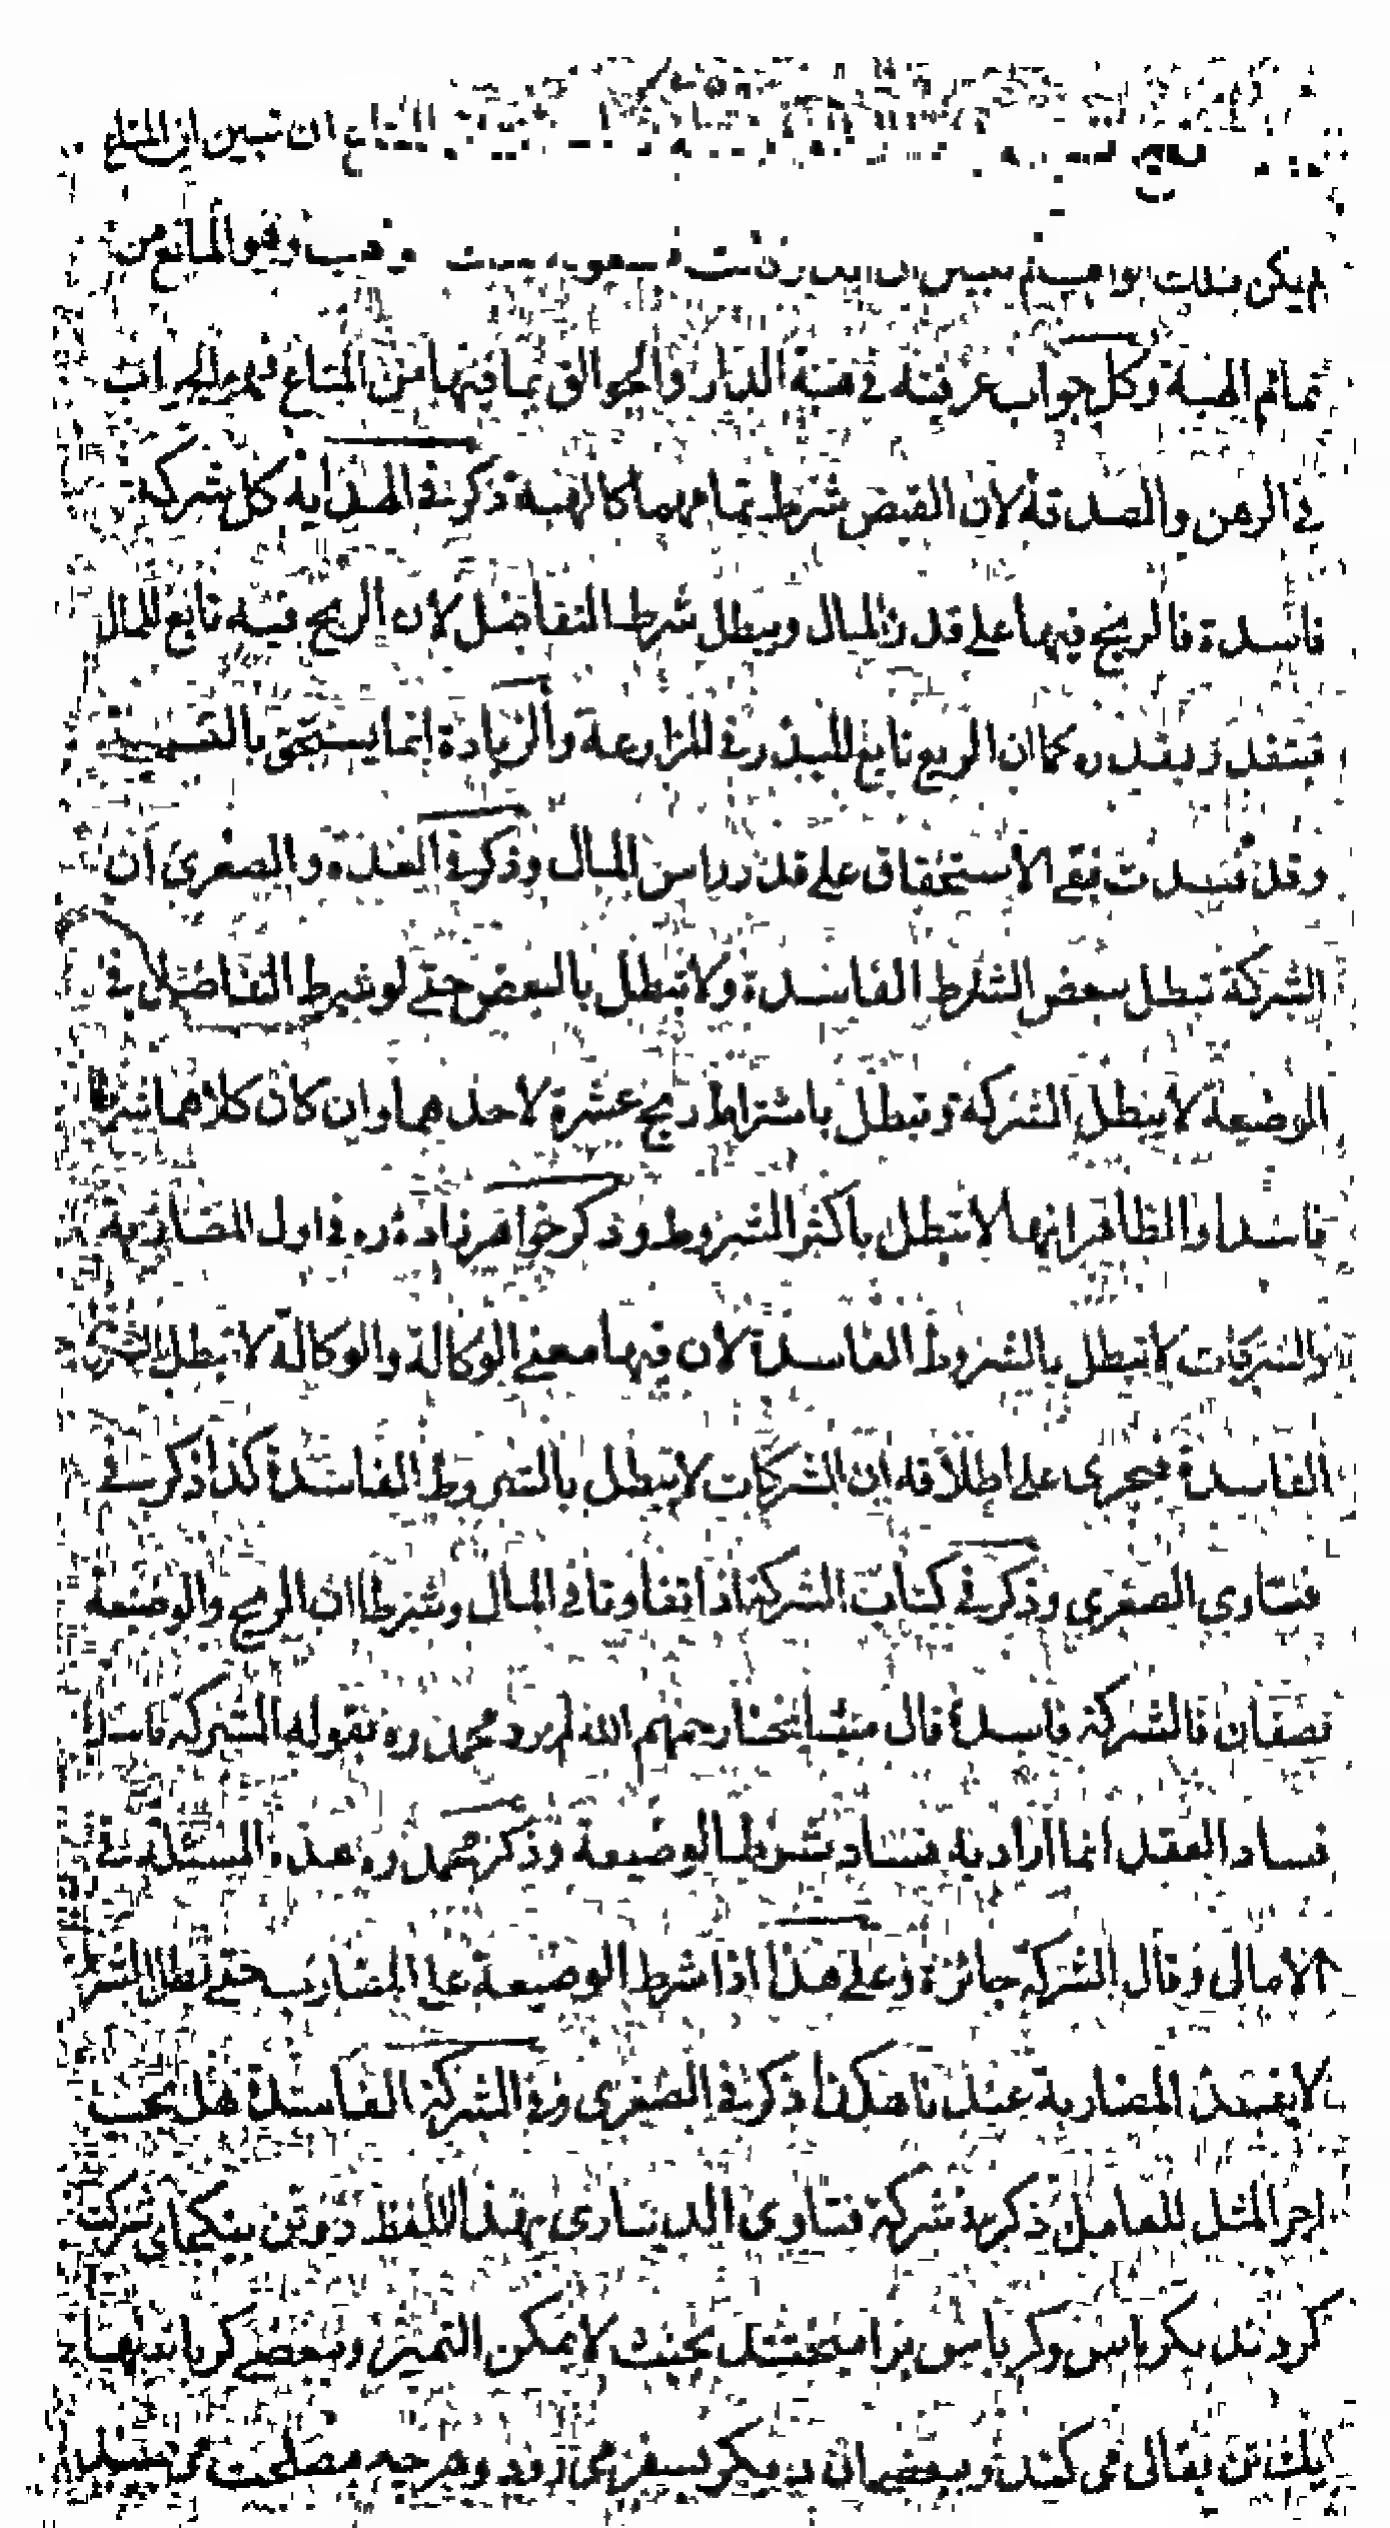 ان تبين ان المتاع
لم يكن ملك الواهب وهب وهو المانع من
تمام الهبة وكل جواب عرفته في هبة الدار والجوالق بما فيها من المتاع فهو الجواب
في الرهن والصدقة لان القبض شرط تمامهما كالهبة ذكر في الهداية كل شركة
فاسدة فالربح فيهما على قدر المال ويبطل شرط التفاضل لان الربح فيه تابع للمال
فيتقدر بقدره كما ان الريع تابع للبذر في المزارعة والزيادة انما يستحق بالتسمية
وقد فسدت فبقي الاستحقاق على قدر راس المال وذكر في العدة والصغرى ان
الشركة تبطل ببعض الشروط الفاسدة ولا تبطل بالبعض حتى لو شرط التفاضل في
الوضيعة لا يبطل الشركة وتبطل باشتراط ربح عشرة لاحدهما وان كان كلاهما شرطا
فاسدا والظاهر انها لا تبطل باكثر الشروط وذكر خواهرزاده ره في اول المضاربة
والشركات لا تبطل بالشروط الفاسدة لان فيها معنى الوكالة والوكالة لا تبطل بالشروط
الفاسدة فيجرى على اطلاقه ان الشركات لا تبطل بالشروط الفاسدة كذا ذكر في
فتاوى الصغرى وذكر في كتاب الشركة اذا تفاوتا في المال وشرطا ان الربح والوضيعة
نصفان فالشركة فاسدة قال مشائخنا رحمهم الله لم يرد محمد ره بقوله الشركة فاسدة
فساد العقد انما اراد به فساد شرط الوضيعة وذكر محمد ره هذه المسئلة في
الامالى وقال الشركة جائزة وعلى هذا اذا شرط الوضيعة على المضارب حتى بطل الشرط
لا يفسد المضاربة عندنا هكذا ذكر في الصغرى وفي الشركة الفاسدة هل يجب
اجر المثل للعامل ذكر في شركة فتاوى الدينارى بهذا اللفظ دو تن بيكجاى شركت
كردند بكرباس وكرباس برا ميختند بحيث لا يمكن التميز وبعضى كرباسها
يك تن بقالى مى كند وببعضى ان ديكر بسفر مى رود وهر چه مصلحت مى بيند